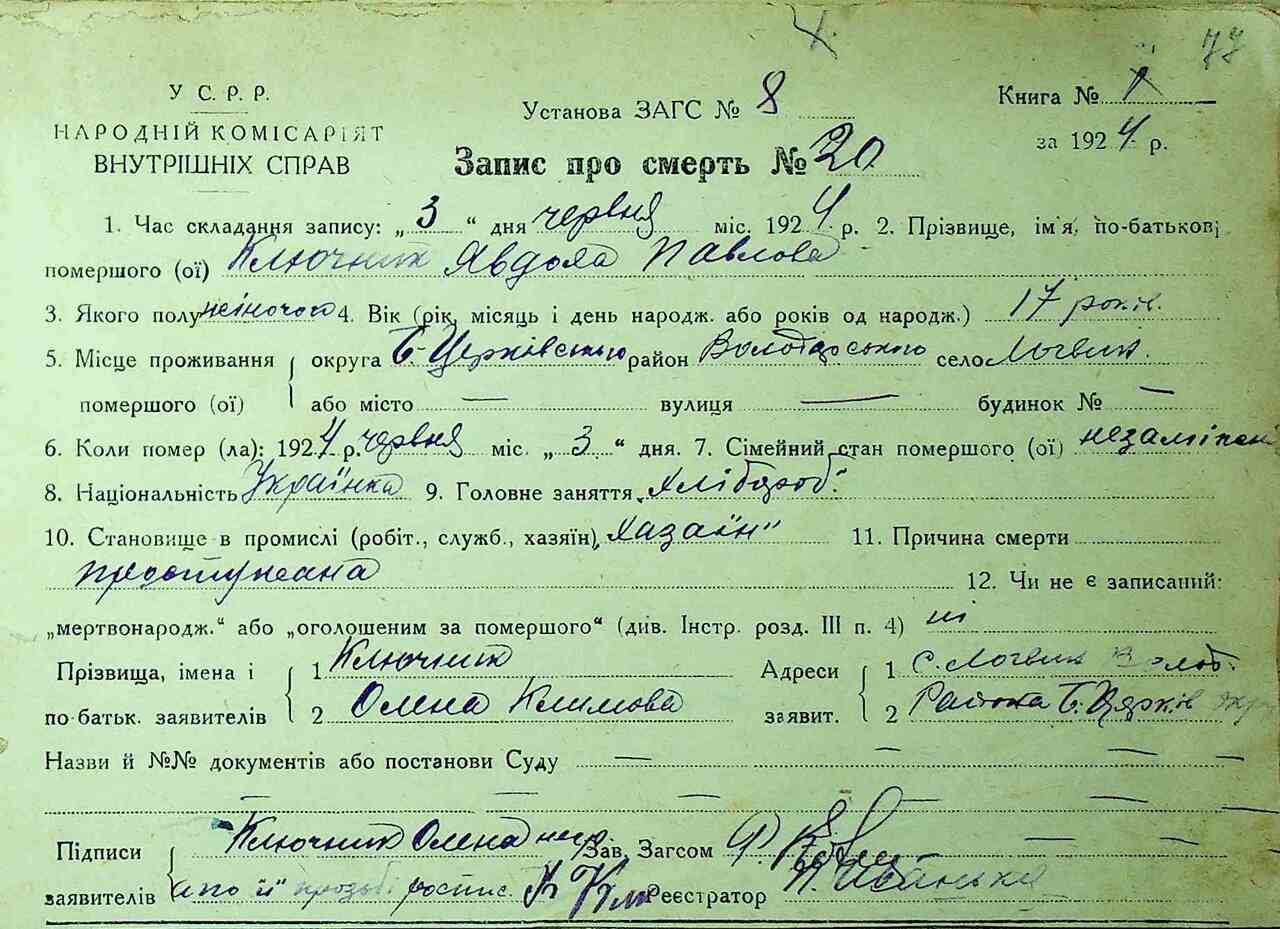 77
У С. Р. Р.
НАРОДНІЙ КОМІСАРІЯТ
ВНУТРІШНІХ СПРАВ
Установа ЗАГС № 8
Книга № 1
за 1924 р.
Запис про смерть № 20
1. Час складання запису: „ 3 “ дня червня міс. 1924 р. 2. Прізвище, ім'я, по-батькові
помершого (ої) Ключник Явдоха Павлова
3. Якого полу жіночого 4. Вік (рік, місяць і день народж. або років од народж.) 17 років.
5. Місце проживання округа Б-Церківського район Володарського село Логвин.
помершого (ої) або місто — вулиця — будинок № —
6. Коли помер (ла): 1924 р. червня міс. „ 3 “ дня. 7. Сімейний стан помершого (ої)
8. Національність Українка 9. Головне заняття „Хлібороб“
10. Становище в промислі (робіт., служб., хазяїн) „Хазаїн“ 11. Причина смерти
простужена 12. Чи не є записаний:
„мертвонародж.“ або „оголошеним за помершого“ (див. Інстр. розд. III п. 4) ні
Прізвища, імена і 1 Ключник Адреси 1 с. Логвин Волод.
по-батьк. заявителів 2 Олена Климова заявит. 2 Района Б. Церків окр
Назви й №№ документів або постанови Суду — — — —
— — — —
Підписи Ключник Олена негр. Зав. Загсом
заявителів а по її прозьбі роспис. Реєстратор